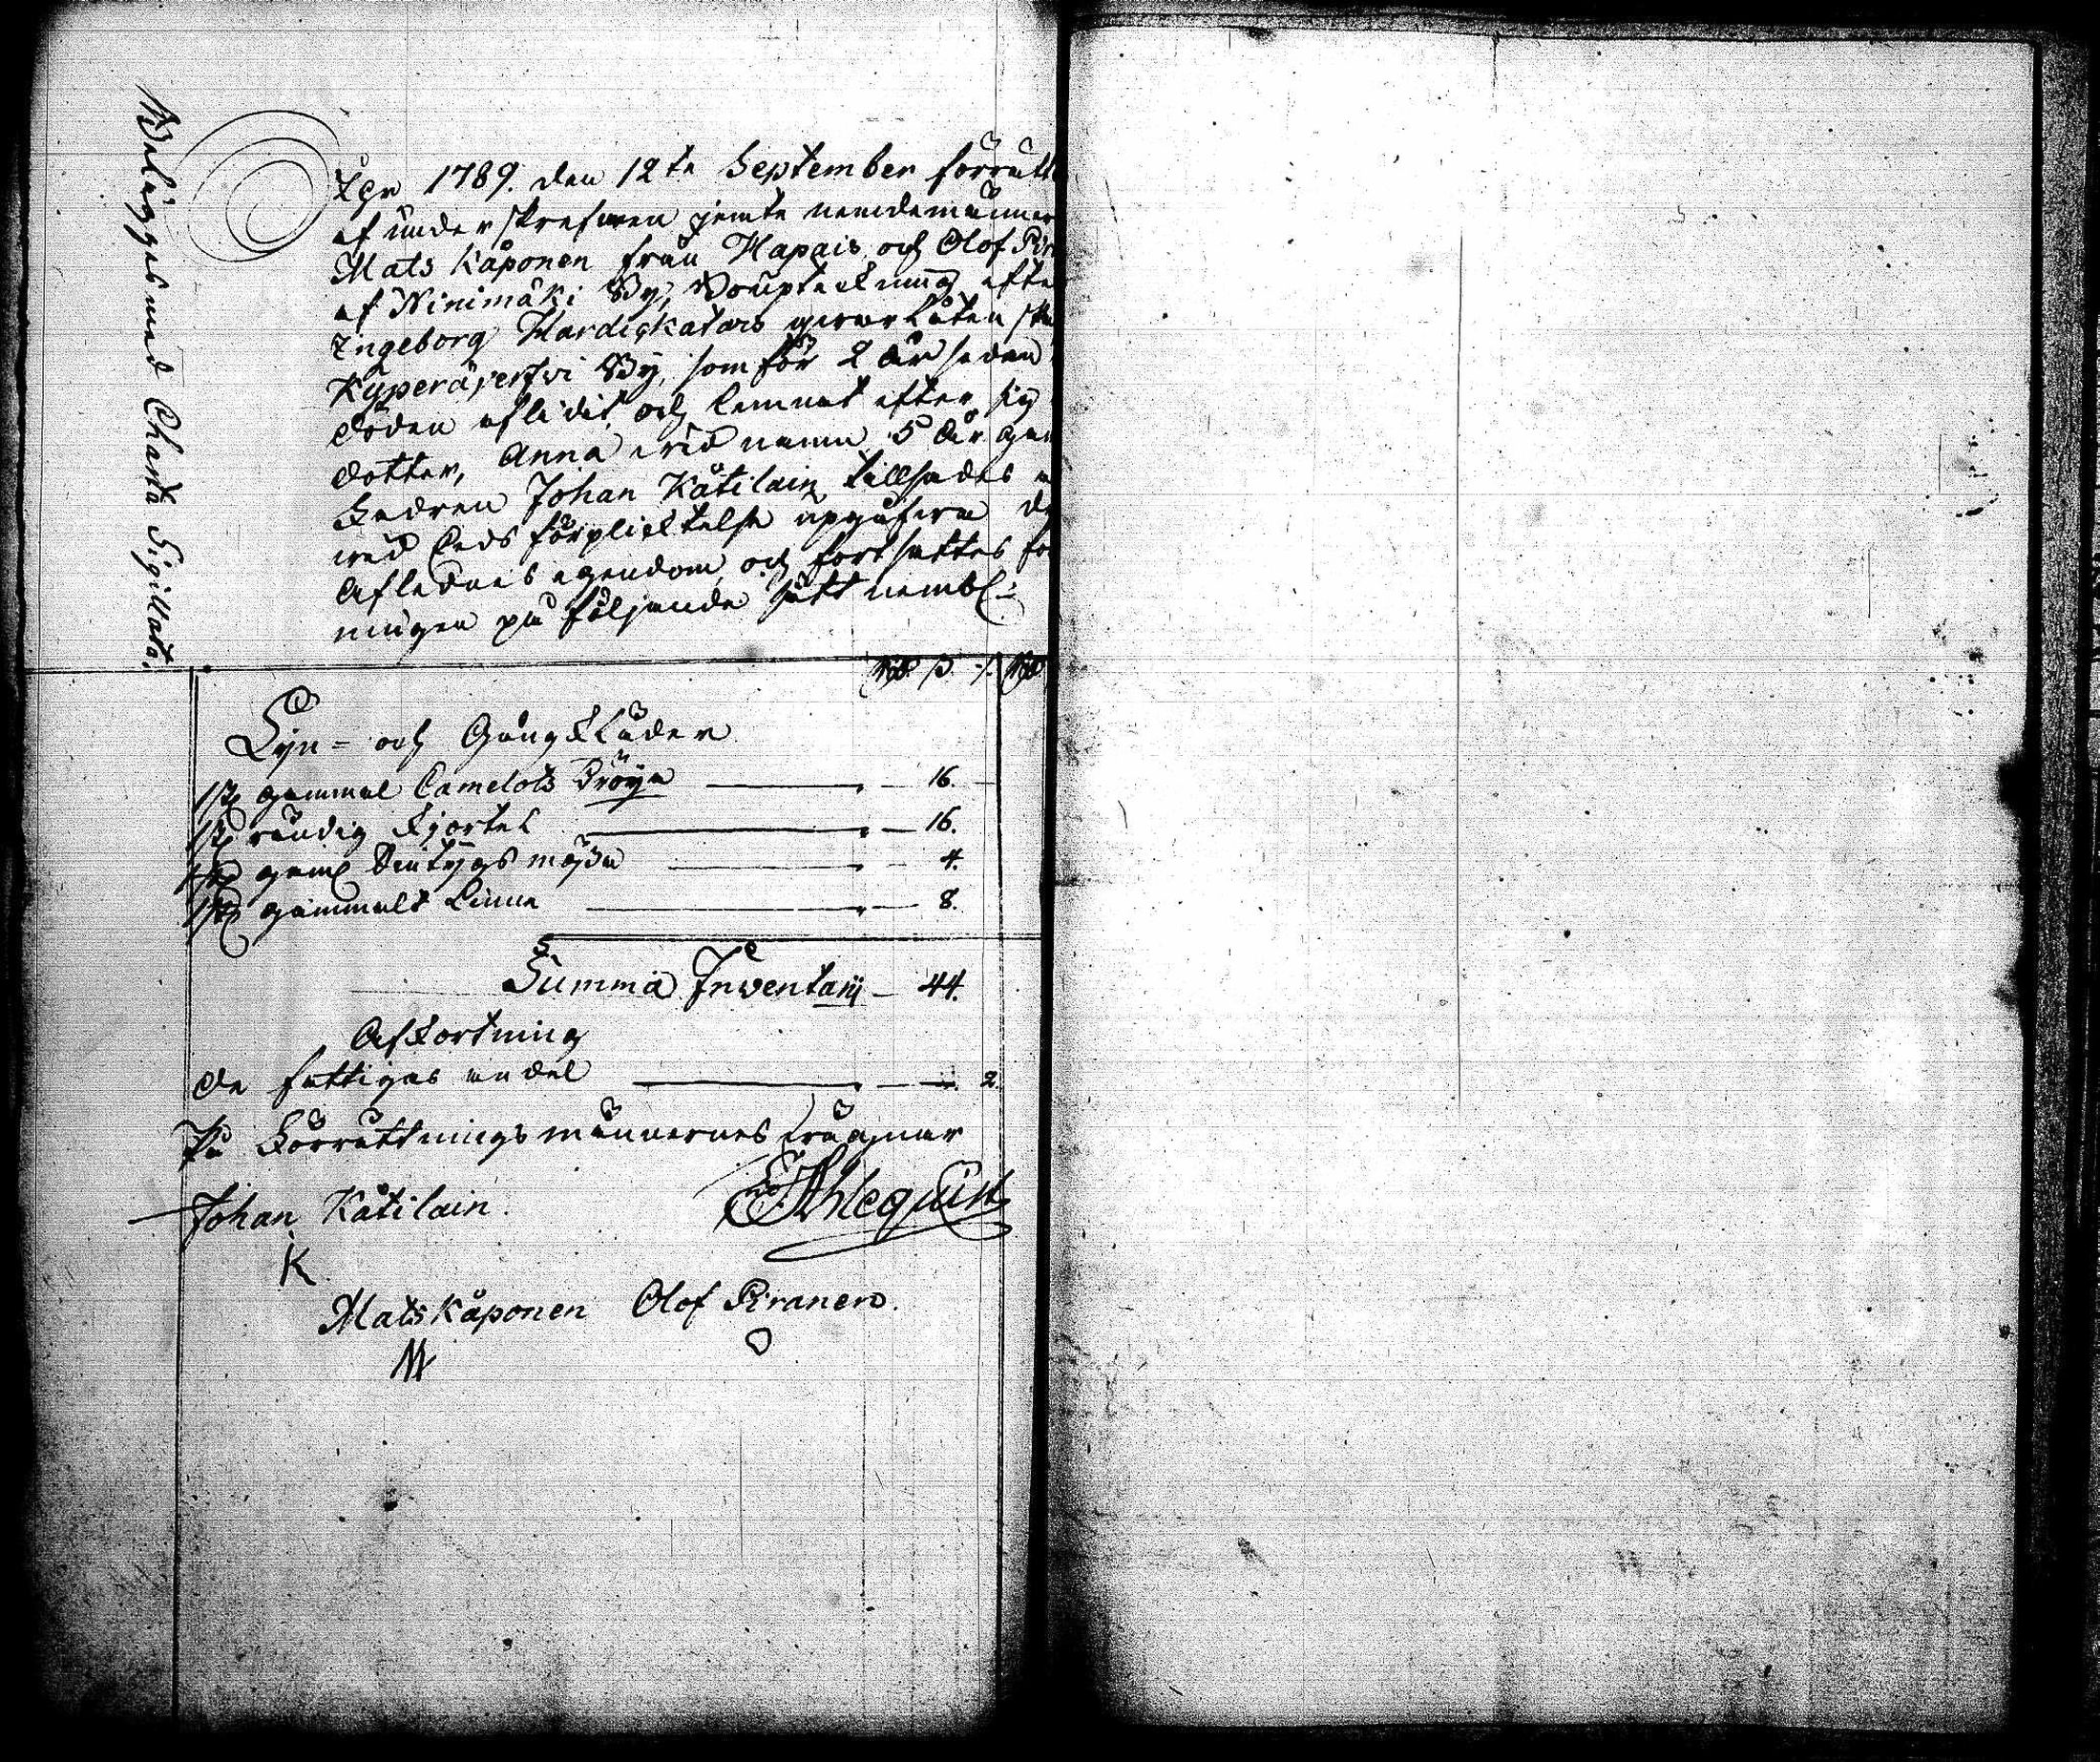 Belägges med Charta Sigillata.
1789. den 12te September förrätt
af underskrefwen jemte nemdemänner
Mats Kåponen från Hapais och Olof Pir
af Ninimäki By, Boupteckning efte
Ingeborg Hardigkatars
By, som för 2 år sedan
döden aflidit, och lemnat efter sig
dotter, Anna wid namn 5 år gam
Fadren Johan Kåtilain tillsades
wid Eds förplicktelse upgifwa de
Aflednes egendom, och fortsattes för
ningen på följande sätt nembl:
Rd. ß. Rd
Lijn- och Gångkläder
1 st gammal Camelots Tröya — 16.
1 st randig kjortel — 16.
1 st gaml mössa — 4.
1 st gammalt Linne — 8.
Summa Inwentarij — 44.
Afkortning
de fattigas andel — 2.
På Förrättningsmännernes wägnar
Johan Kåtilain. E Ahlequist
K
Mats Kåponen Olof Piranen.
M O